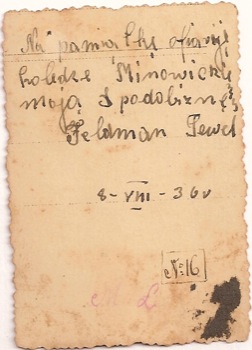 Na pamiatkę ofiaruję
koledze Minowickię
moją I podobiznę
Feldman Pewel
8-VIII-36v
№16
M L